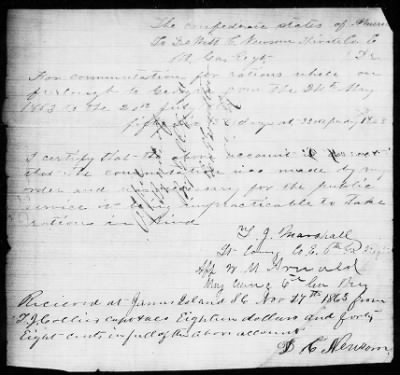 The confederate states of Ameri
To DeWitt C. Newsom Private Co
6th Ga Regt Dr
For commutation for rations while on
furlough to Georgia from the 24th May
1863 to the 20th July
fifty days at 33
I certify that the above account is correct
that the commutation was made by my
order and was necessary for the public
service it being impracticable to take
rations in kind
T. J. Marshall
Lt Comg Co E. 6th Ga
App W M Arnold
Maj Comg 6th Ga Reg
Recieved at James Island S C Nov 17th 1863 from
T J Collins capt acs Eighteen dollars and forty
Eight cents in full of the above account
D C Newsom